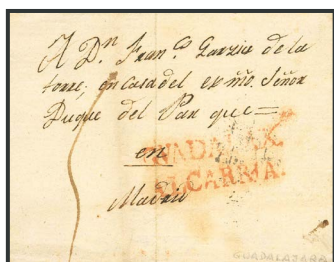 A Dn. Franco. Garzia de la
torre, en Casa del exmo. Señor
Duque del Par que=
en
Madrid
GUADALAX.
ALCARRIA.
GUADALAJARA